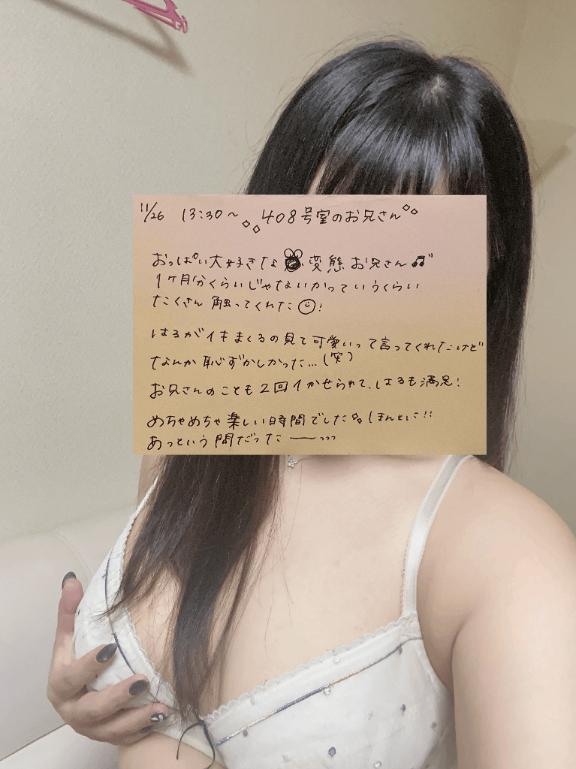 11/26 13:30〜 408号室のお兄さん
おっぱい大好きな 変態お兄さん♫
1ヶ月分くらいじゃないかっていうくらい
たくさん触ってくれた☺!
はるがイキまくるの見て可愛いって言ってくれたけど
なんか恥ずかしかった…(笑)
お兄さんのことも2回イかせられて、はるも満足!
めちゃめちゃ楽しい時間でした ほんとに!!
あっという間だったー